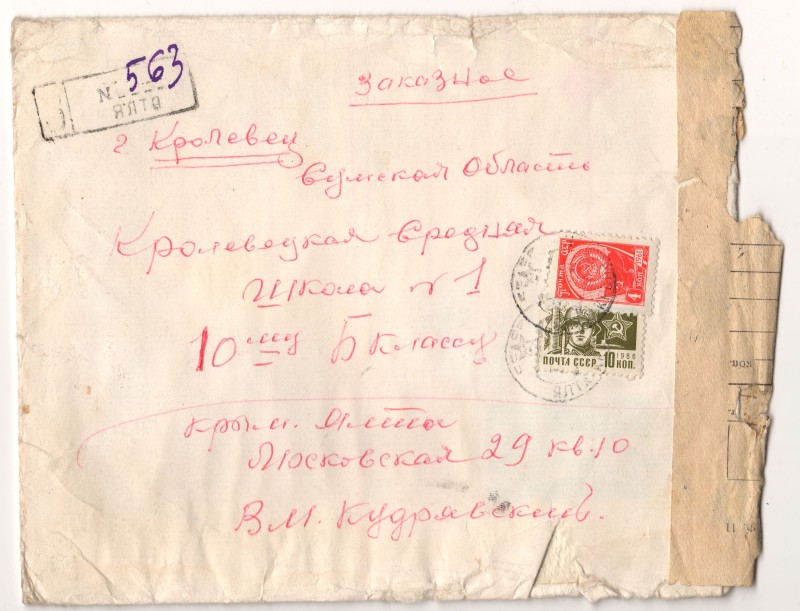 № 563
ЯЛТА
Заказное
г. Кролевец
Сумская Область
Кролевецкая Средняя
Школа № 1
10му Б Классу
ПОЧТА СССР 10 КОП.
1966
Крым. Ялта
Московская 29 кв. 10
В.М. Кудрявский.